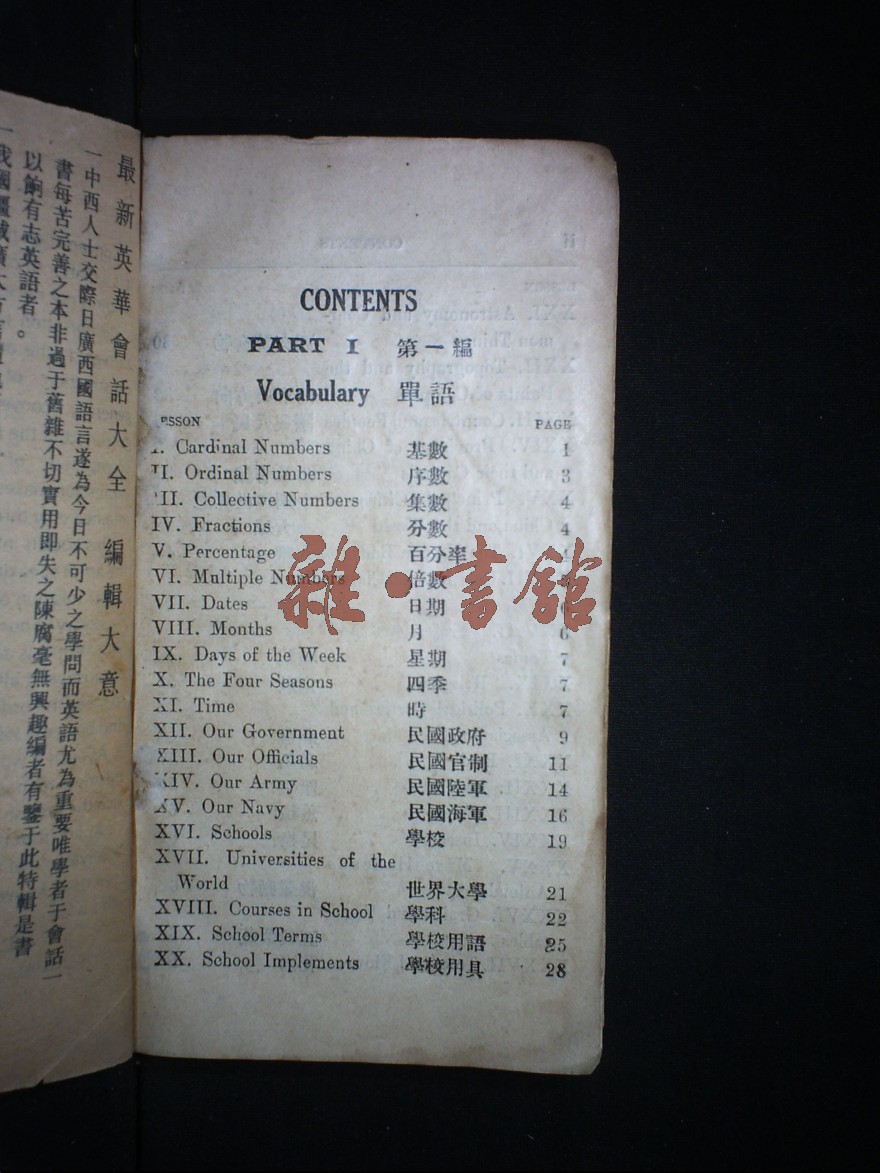 最新英華會話大全 編輯大意
一中西人士交際日廣西國語言遂為今日不可少之學問而英語尤為重要唯學者于會話一
書每苦完善之本非過于舊雜不切實用即失之陳腐毫無興趣編者有鑒于此特輯是書
以餉有志英語者。
CONTENTS
PART I 第一編
Vocabulary 單語
ESSON PAGE
I. Cardinal Numbers 基數 1
II. Ordinal Numbers 序數 3
III. Collective Numbers 集數 4
IV. Fractions 分數 4
V. Percentage 百分率 4
VI. Multiple Numbers 倍數 5
VII. Dates 日期 6
VIII. Months 月 6
IX. Days of the Week 星期 7
X. The Four Seasons 四季 7
XI. Time 時 7
XII. Our Government 民國政府 9
XIII. Our Officials 民國官制 11
XIV. Our Army 民國陸軍 14
XV. Our Navy 民國海軍 16
XVI. Schools 學校 19
XVII. Universities of the
World 世界大學 21
XVIII. Courses in School 學科 22
XIX. School Terms 學校用語 25
XX. School Implements 學校用具 28
雜·書館